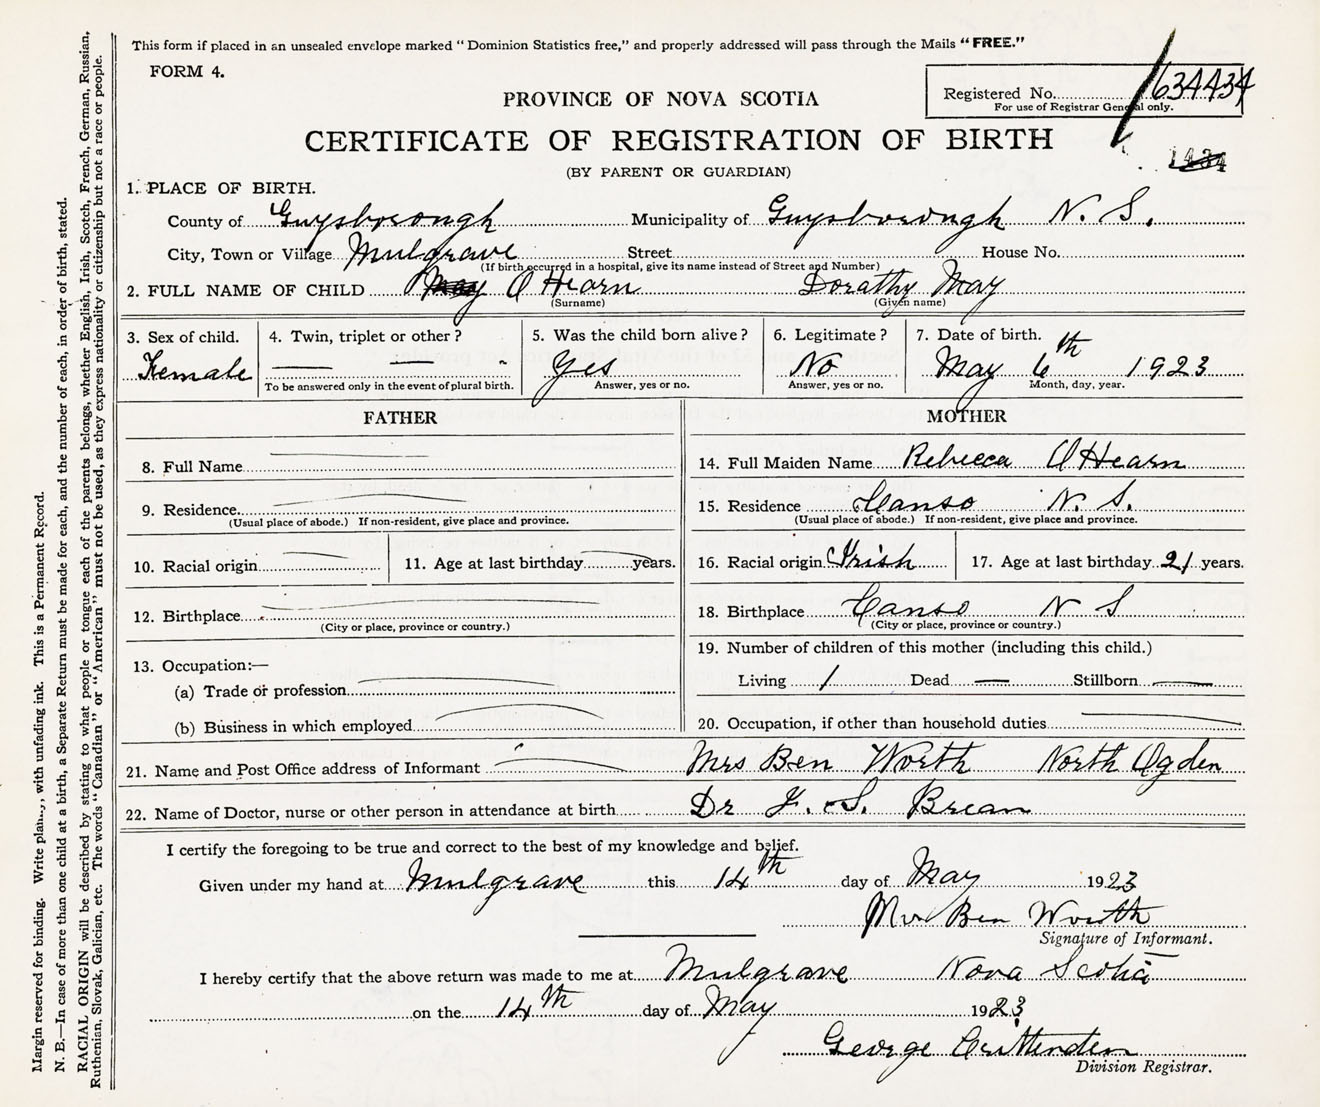 This form if placed in an unsealed envelope marked "Dominion Statistics free," and properly addressed will pass through the Mails "FREE."
FORM 4.
Registered No. 634434
For use of Registrar General only.
PROVINCE OF NOVA SCOTIA
CERTIFICATE OF REGISTRATION OF BIRTH
1434
(BY PARENT OR GUARDIAN)
1. PLACE OF BIRTH.
County of Guysborough Municipality of Guysborough N. S.
City, Town or Village Mulgrave Street House No.
(If birth occurred in a hospital, give its name instead of Street and Number)
2. FULL NAME OF CHILD May O Hearn Dorathy May
(Surname) (Given name)
3. Sex of child. 4. Twin, triplet or other? 5. Was the child born alive? 6. Legitimate? 7. Date of birth.
Female — — - Yes No May 6th 1923
To be answered only in the event of plural birth. Answer, yes or no. Answer, yes or no. Month, day, year.
FATHER MOTHER
8. Full Name 14. Full Maiden Name Rebecca O Hearn
9. Residence. 15. Residence Canso N. S.
(Usual place of abode.) If non-resident, give place and province. (Usual place of abode.) If non-resident, give place and province.
10. Racial origin 11. Age at last birthday years. 16. Racial origin Irish 17. Age at last birthday 21 years.
12. Birthplace 18. Birthplace Canso N S
(City or place, province or country.) (City or place, province or country.)
13. Occupation:— 19. Number of children of this mother (including this child.)
(a) Trade or profession Living 1 Dead — Stillborn —
(b) Business in which employed 20. Occupation, if other than household duties
21. Name and Post Office address of Informant Mrs Ben Worth North Ogden
22. Name of Doctor, nurse or other person in attendance at birth Dr J. S. Brean
I certify the foregoing to be true and correct to the best of my knowledge and belief.
Given under my hand at Mulgrave this 14th day of May 1923
Mrs Ben Worth
Signature of Informant.
I hereby certify that the above return was made to me at Mulgrave Nova Scotia
on the 14th day of May 1923
George Crittenden
Division Registrar.
Margin reserved for binding. Write with unfading ink. This is a Permanent Record.
N. B.—In case of more than one child at a birth, a Separate Return must be made for each, and the number of each, in order of birth, stated.
RACIAL ORIGIN will be described by stating to what people or tongue each of the parents belongs, whether English, Irish, Scotch, French, German, Russian,
Ruthenian, Slovak, Galician, etc. The words "Canadian" or "American" must not be used, as they express nationality or citizenship but not a race or people.